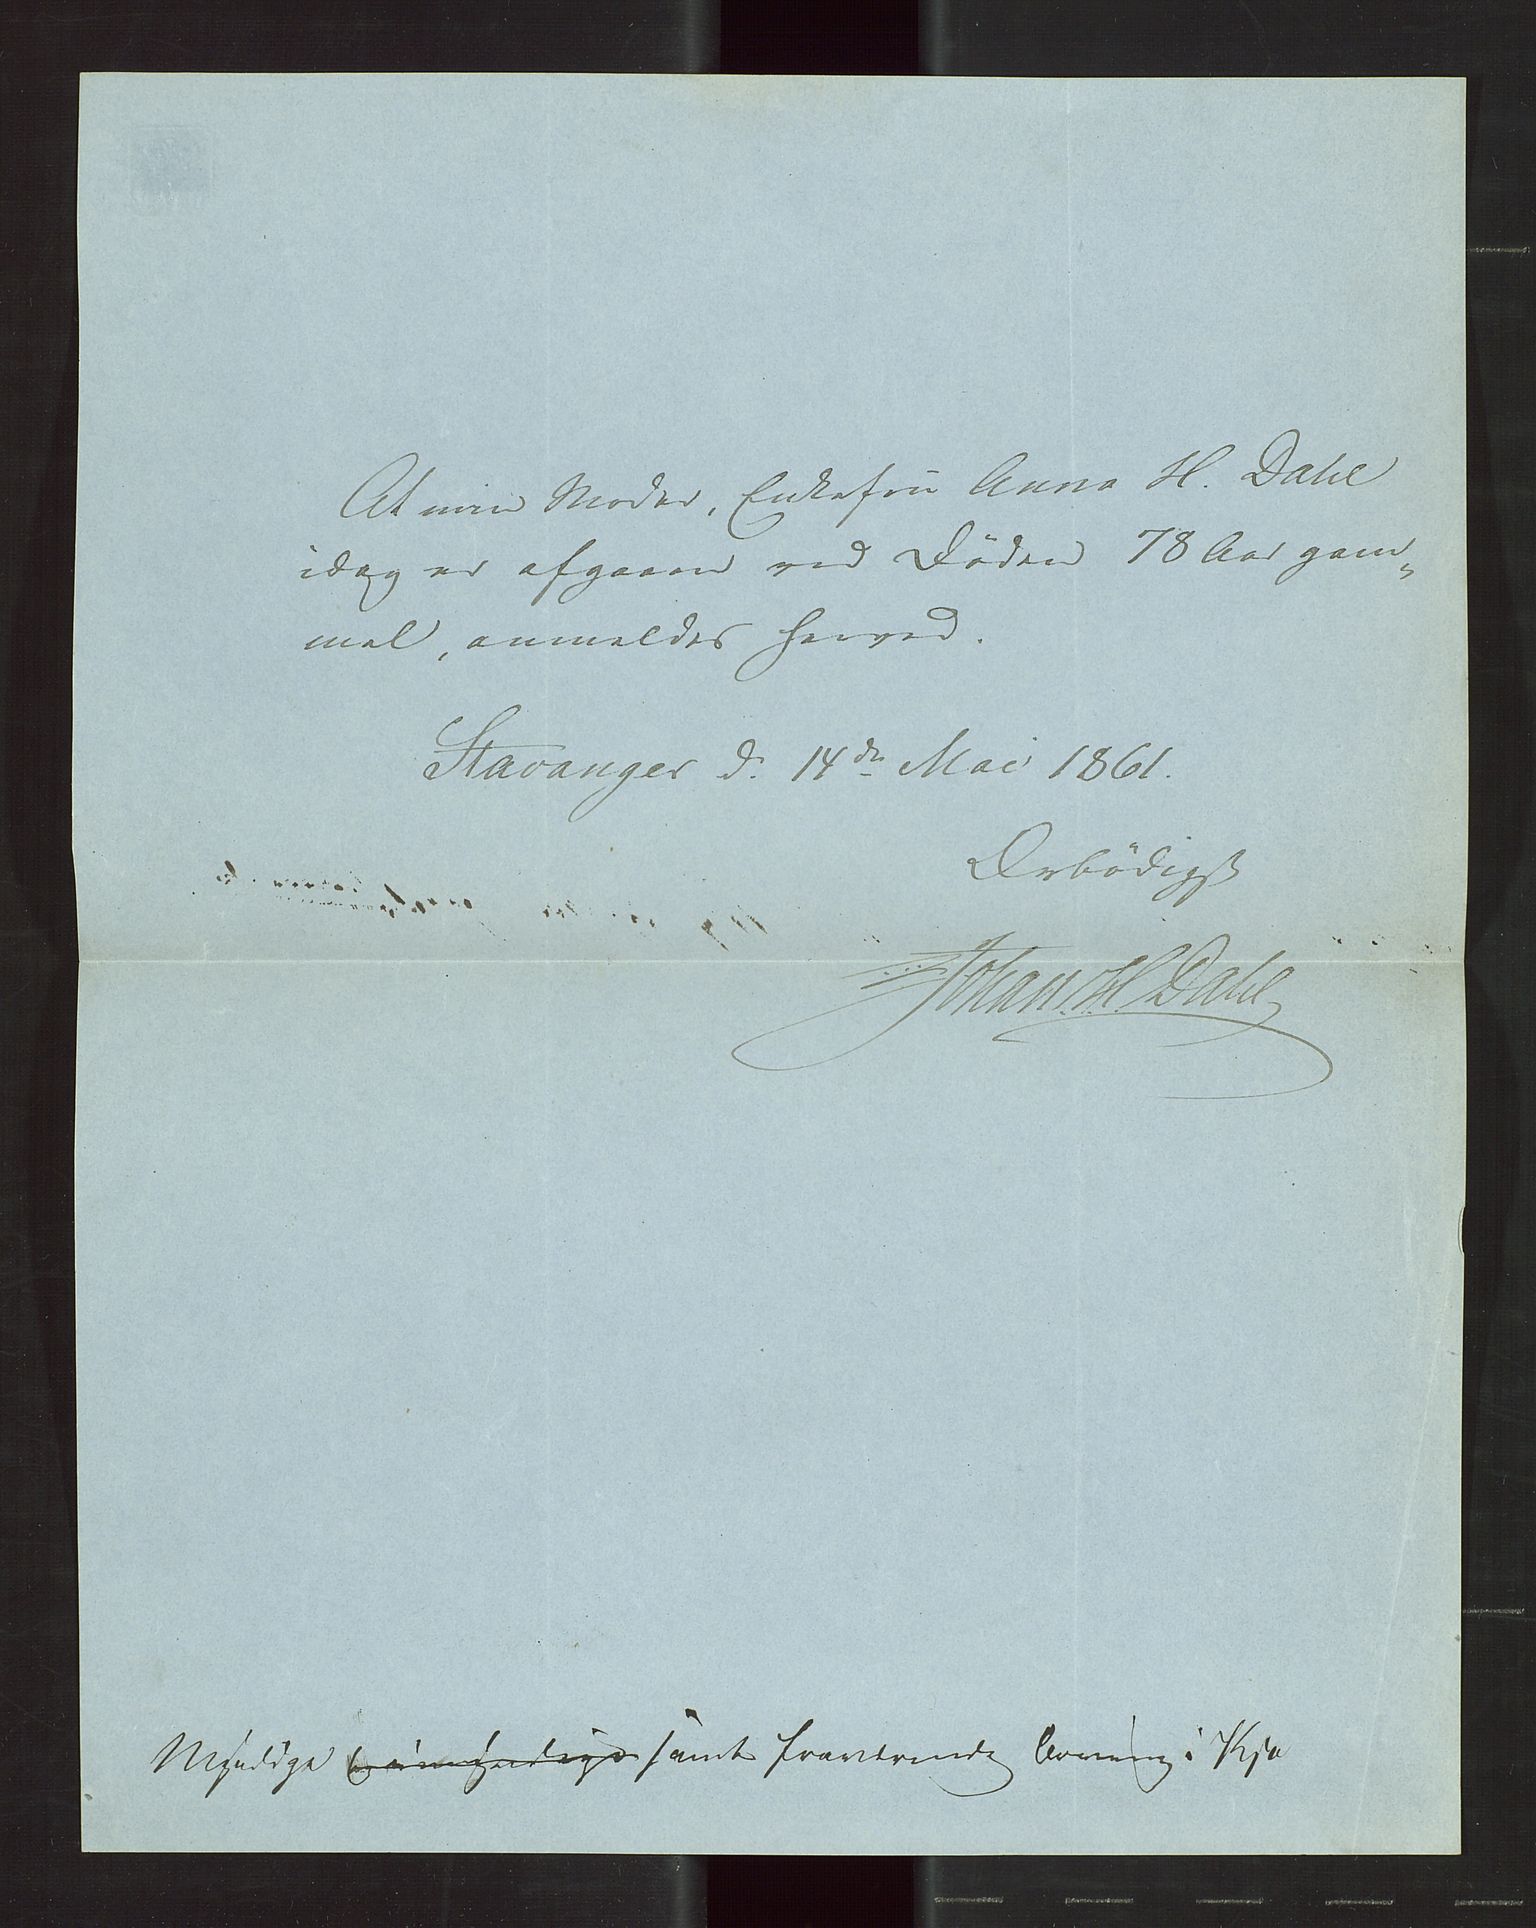 At min Moder, Enkefru Anna H. Dahl
idag er afgaaen ved Døden 78 Aar gam„
mel, anmeldes herved.
Stavanger d. 14de Mai 1861.
Ærbödigst
Johan H Dahl
Myndige & umyndige samt fraværende Arving i Kra